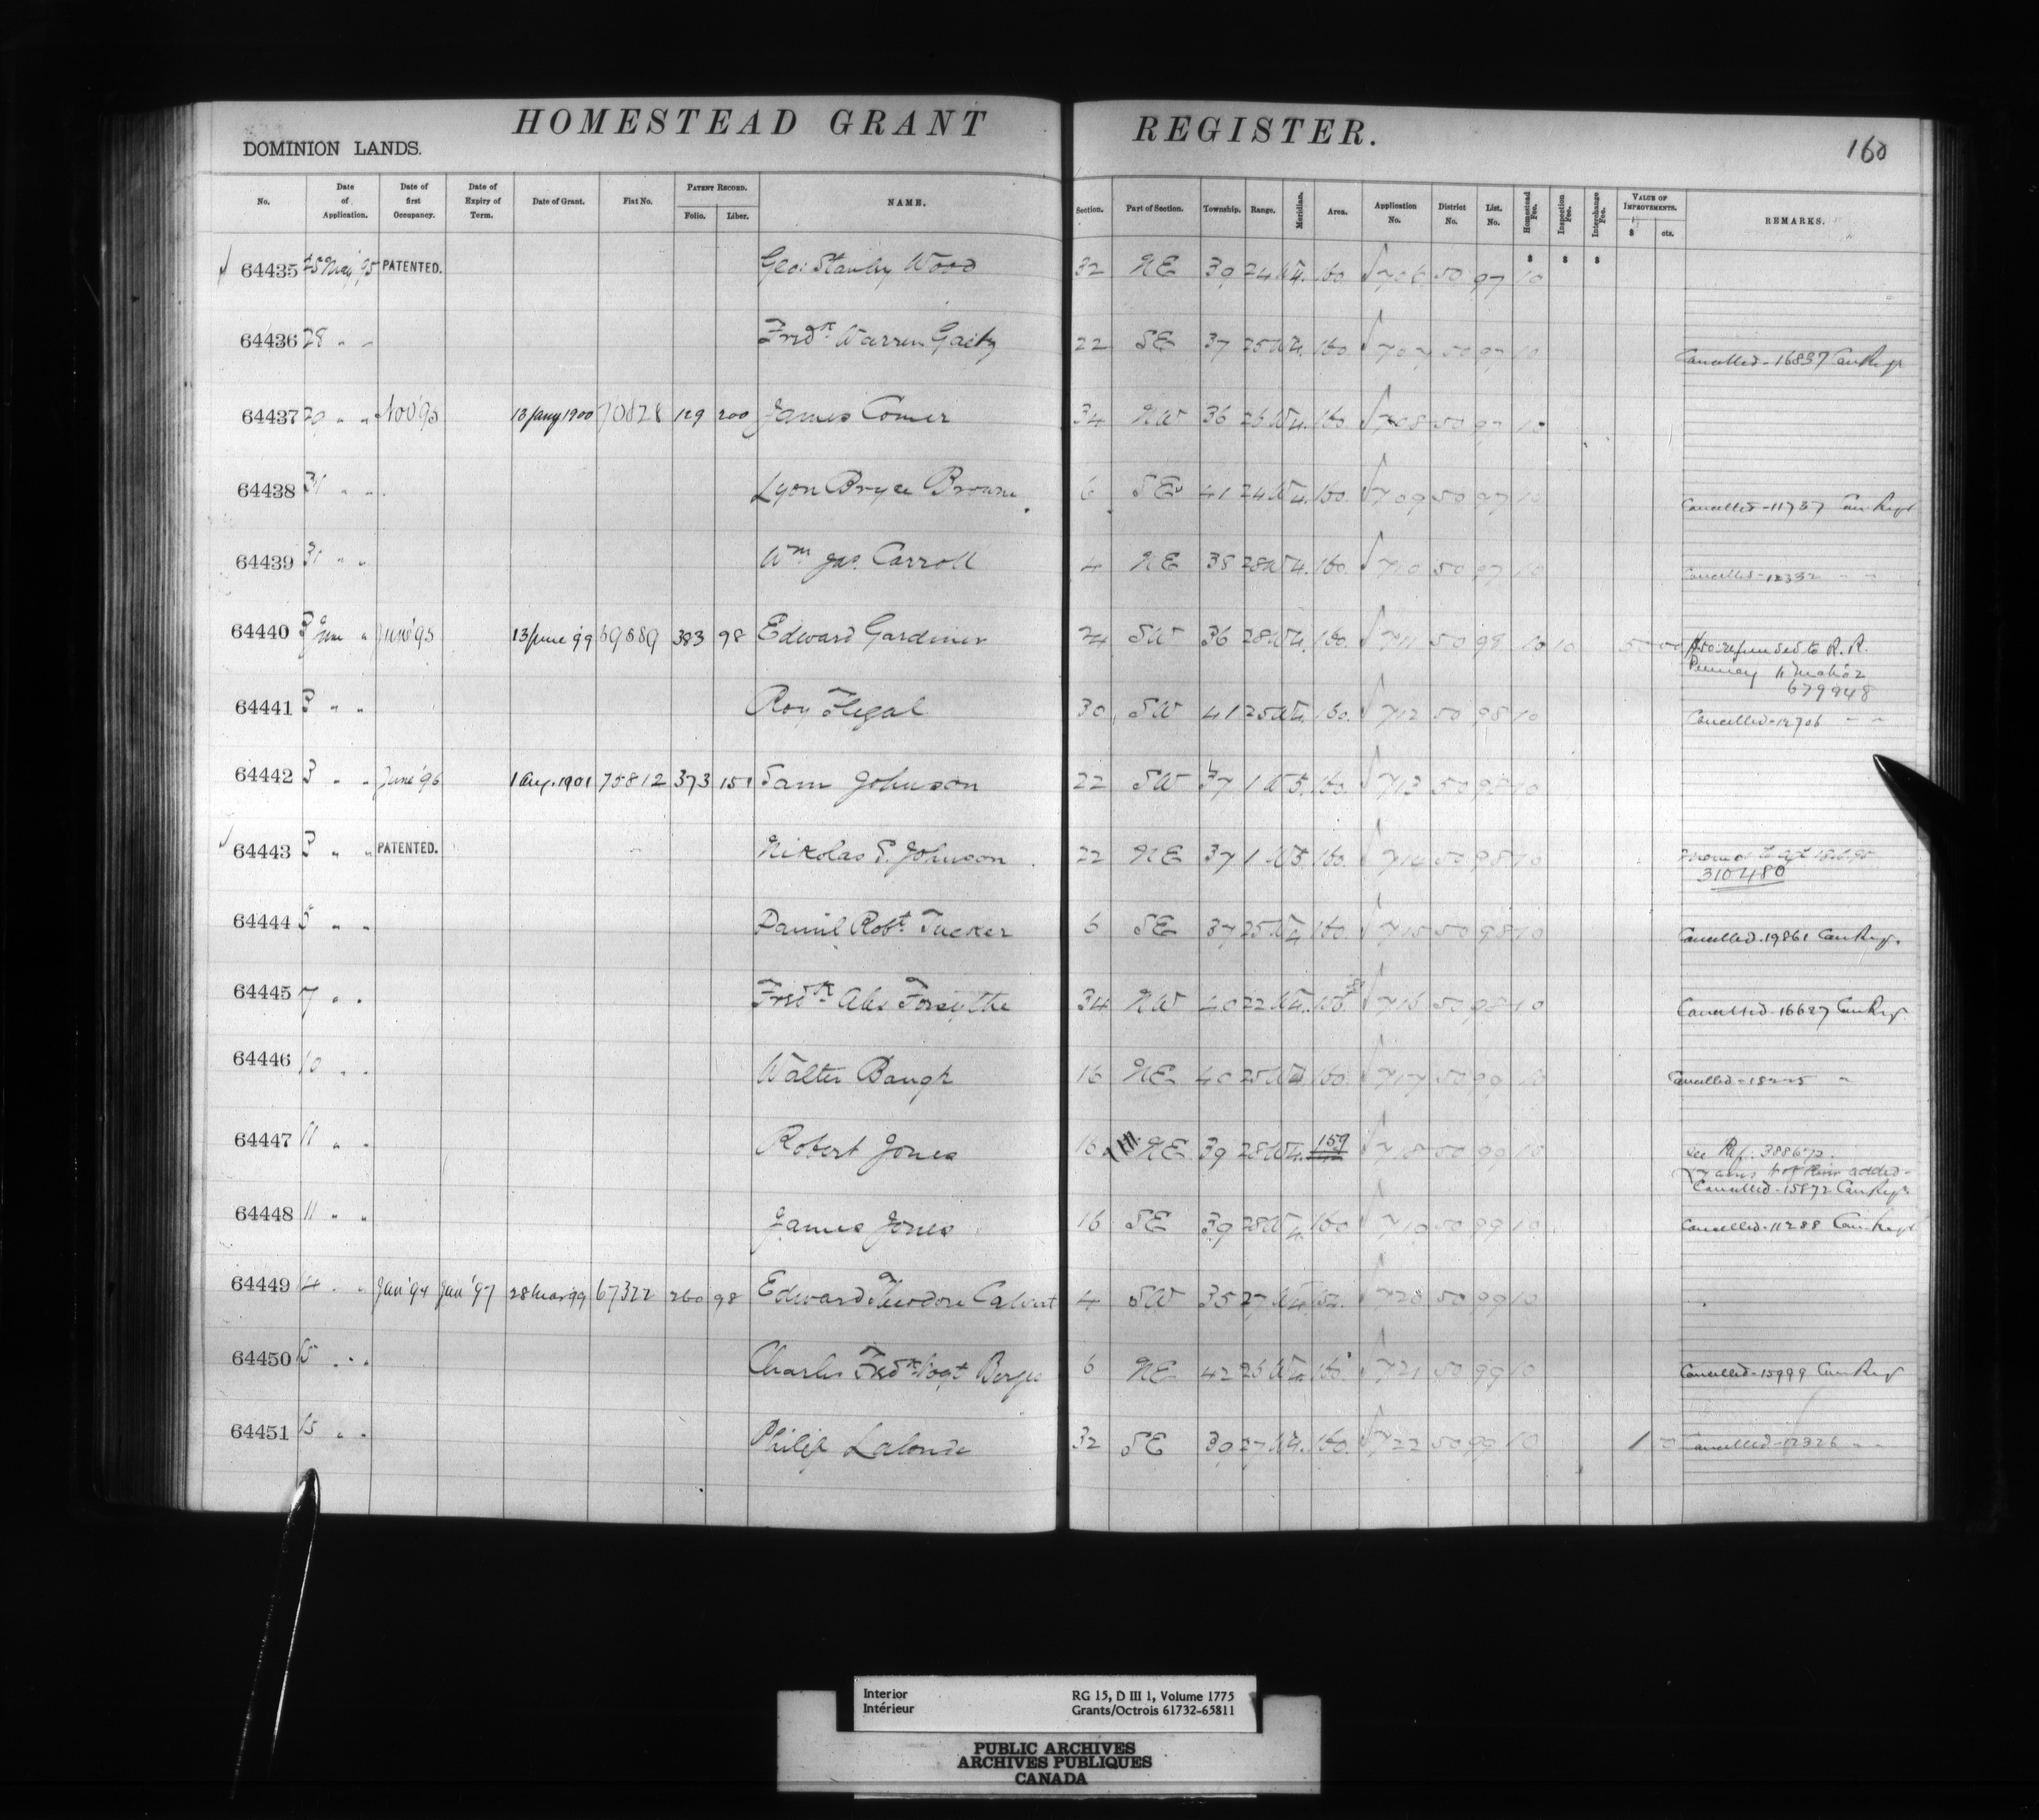 HOMESTEAD GRANT REGISTER.
160
DOMINION LANDS.
No. Date of Application. Date of first Occupancy. Date of Expiry of Term. Date of Grant. Fiat No. PATENT RECORD. Folio. Liber. NAME. Section. Part of Section. Township. Range. Meridian. Area. Application No. District No. List. No. Homestead Fee. Inspection Fee. Interchange Fee. VALUE OF IMPROVEMENTS. $ cts. REMARKS.
64435 25 May '95 PATENTED. Geo: Stanley Wood 32 NE 39 24 W 4. 160. 706 50 97 10
64436 28 " " Fredk Warren 22 SE 37 25 W 4. 160. 707 50 97 10 Cancelled - 16837 Can Reg
64437 " " Nov '95 13 Jany 1900 70828 129 200 James Comer 34 NW 36 26 W 4. 160. 708 50 97 10
64438 31 " " Lyon Bryce Brown 6 SE 41 24 W 4. 160. 709 50 97 10 Cancelled - 11737 Can Reg
64439 31 " " Wm Jas. Carroll 4 NE 38 28 W 4. 160. 710 50 97 10 Cancelled - 12332 " "
64440 3 June " June '95 13 June '99 69889 383 98 Edward Gardiner 24 SW 36 28 W 4. 160. 711 50 98 10 10 50 00 refunded to R. R.
Penney 11 Mch '02
679948
64441 3 " " Roy Flegal 30 SW 41 25 W 4. 160. 712 50 98 10 Cancelled - 12706 " "
64442 3 " " June '96 1 Aug. 1901 75812 373 151 Sam Johnson 22 SW 37 1 W 5. 160. 713 50 98 10
64443 3 " " PATENTED. Nikolas S. Johnson 22 NE 37 1 W 5. 160. 714 50 98 10
310480
64444 5 " " Daniel Robt. Tucker 6 SE 37 25 W 4 160. 715 50 98 10 Cancelled. 19861 Can Reg.
64445 7 " " Fredk Alex Forsythe 34 NW 40 22 W 4. 716 50 98 10 Cancelled - 16627 Can Reg.
64446 10 " " Walter Baugh 16 NE 40 25 W 4 160. 717 50 99 10 Cancelled - "
64447 11 " " Robert Jones 16 NE 39 28 W 4. 159 718 50 99 10 See Ref. 388672.
added -
Cancelled - 15872 Can Reg
64448 11 " " James Jones 16 SE 39 28 W 4. 160 719 50 99 10 Cancelled - 11288 Can Reg
64449 14 " " Jan '94 Jan '97 28 Mar 99 67322 260 98 Edward Theodore Calvert 4 SW 35 27 W 4 720 50 99 10
64450 15 " " Charles Fredk Berges 6 NE 42 26 W 4. 160. 721 50 99 10 Cancelled - 15999 Can Reg
64451 15 " " Philip Lalonde 32 SE 39 27 W 4. 160. 722 50 99 10 Cancelled - " "
Interior RG 15, D III 1, Volume 1775
Intérieur Grants/Octrois 61732-65811
PUBLIC ARCHIVES
ARCHIVES PUBLIQUES
CANADA